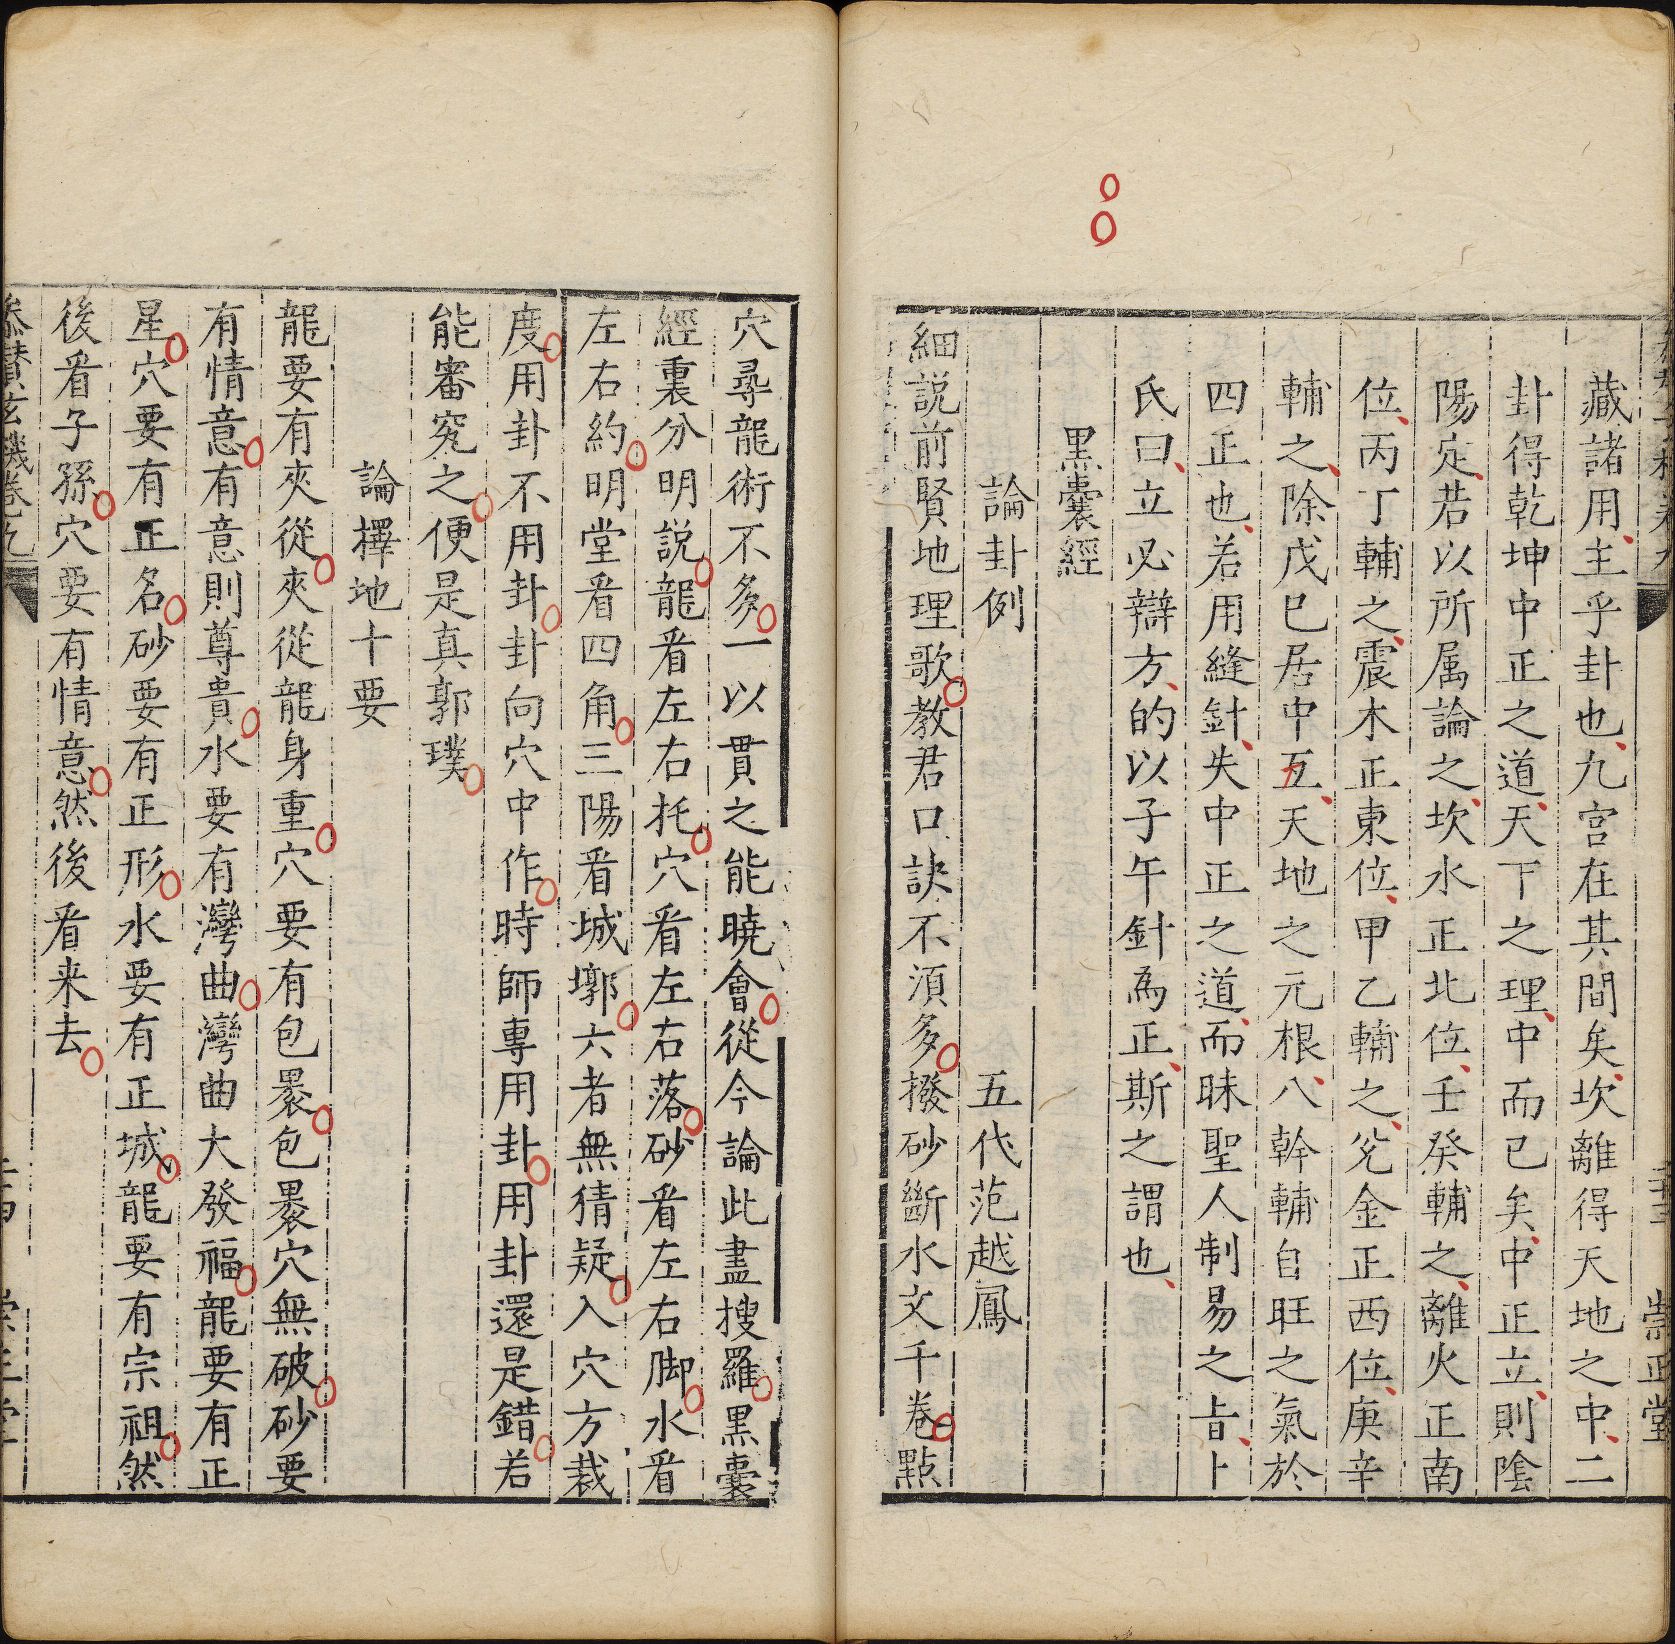 藏諸用主乎卦也九宮在其間矣坎離得天地之中二
卦得乾坤中正之道天下之理中而已矣中正立則陰
陽定若以所属論之坎水正北位壬癸輔之離火正南
位丙丁輔之震木正東位甲乙輔之兊金正西位庚辛
輔之除戊巳居中五天地之元根八幹輔自旺之氣於
四正也若用縫針失中正之道而昧聖人制易之旨卜
氏曰立必辯方的以子午針為正斯之謂也
黑囊經
論卦例 五代范越鳳
細説前賢地理歌教君口訣不須多撥砂斷水文千卷點
穴尋龍術不多一以貫之能曉會從今論此盡搜羅黑囊
經裏分明説龍看左右托穴看左右落砂看左右脚水看
左右約明堂看四角三陽看城墎六者無猜疑入穴方裁
度用卦不用卦卦向穴中作時師專用卦用卦還是錯若
能審究之便是真郭璞
論擇地十要
龍要有夾從夾從龍身重穴要有包褁包褁穴無破砂要
有情意有意則尊貴水要有灣曲灣曲大發福龍要有正
星穴要有正名砂要有正形水要有正城龍要有宗祖然
後看子孫穴要有情意然後看来去